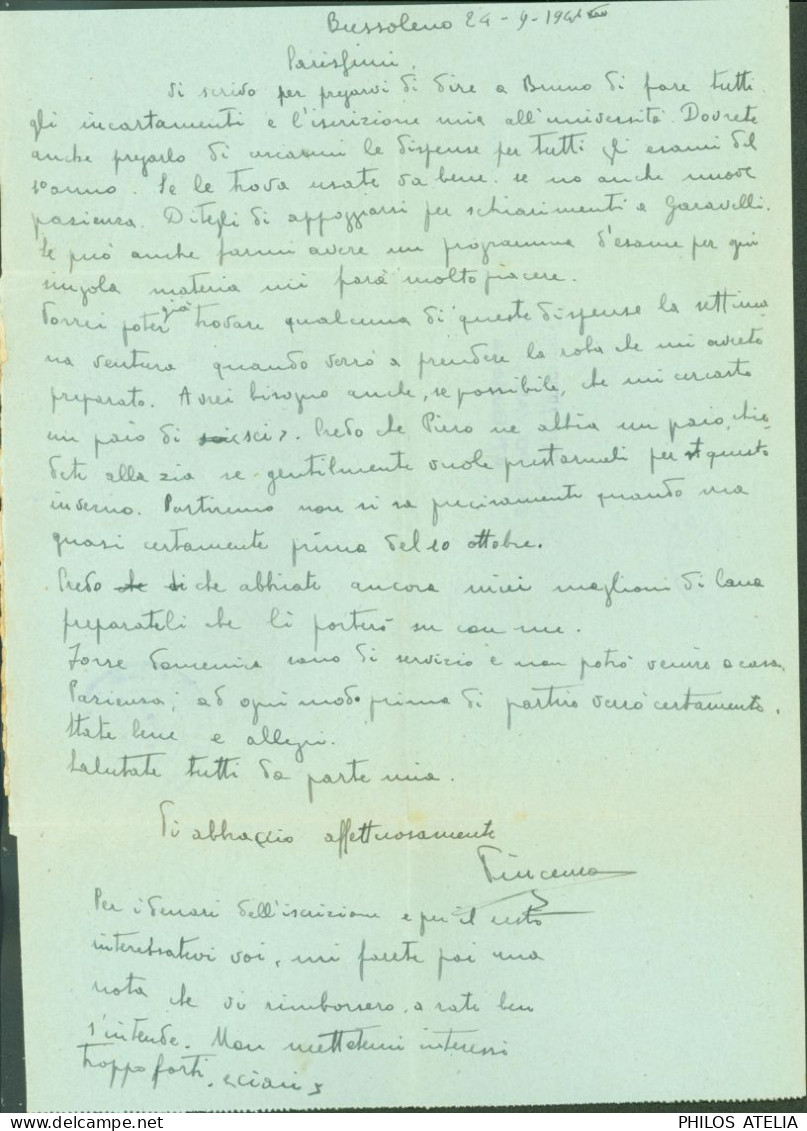 Bussoleno 24-9-194
Carissimi,
Vi scrivo per pregarvi di dire a Bruno di fare tutti
gli incartamenti e l'iscrizione mia all'università. Dovrete
anche pregarlo di cercarmi le dispense per tutti gli esami del
anno. Se le trova usate va bene. se no anche nuove
pazienza. Ditegli di appoggiarsi per schiarimenti a Garavelli.
Se può anche farmi avere un programma d'esame per ogni
singola materia mi farà molto piacere.
Vorrei poter già trovare qualcuna di queste dispense la settima
na ventura quando verrò a prendere la roba che mi avrete
preparato. Avrei bisogno anche, se possibile, che mi cercaste
un paio di sci. Credo che Piero ne abbia un paio, chie
dete alla zia se gentilmente vuole prestarmeli per questo
inverno. Partiremo non si sa precisamente quando ma
quasi certamente prima del 10 ottobre.
Credo che abbiate ancora miei maglioni di lana
preparateli che li porterò su con me.
Forse domenica sono di servizio e non potrò venire a casa.
Pazienza; ad ogni modo prima di partire verrò certamente.
State bene e allegri.
Salutate tutti da parte mia.
Vi abbraccio affettuosamente
Vincenzo
Per i denari dell'iscrizione e per il resto
interessatevi voi, mi farete poi una
nota che vi rimborserò, a rate ben
s'intende. Non mettetemi interessi
troppo forti. ciao
PHILOS ATELIA